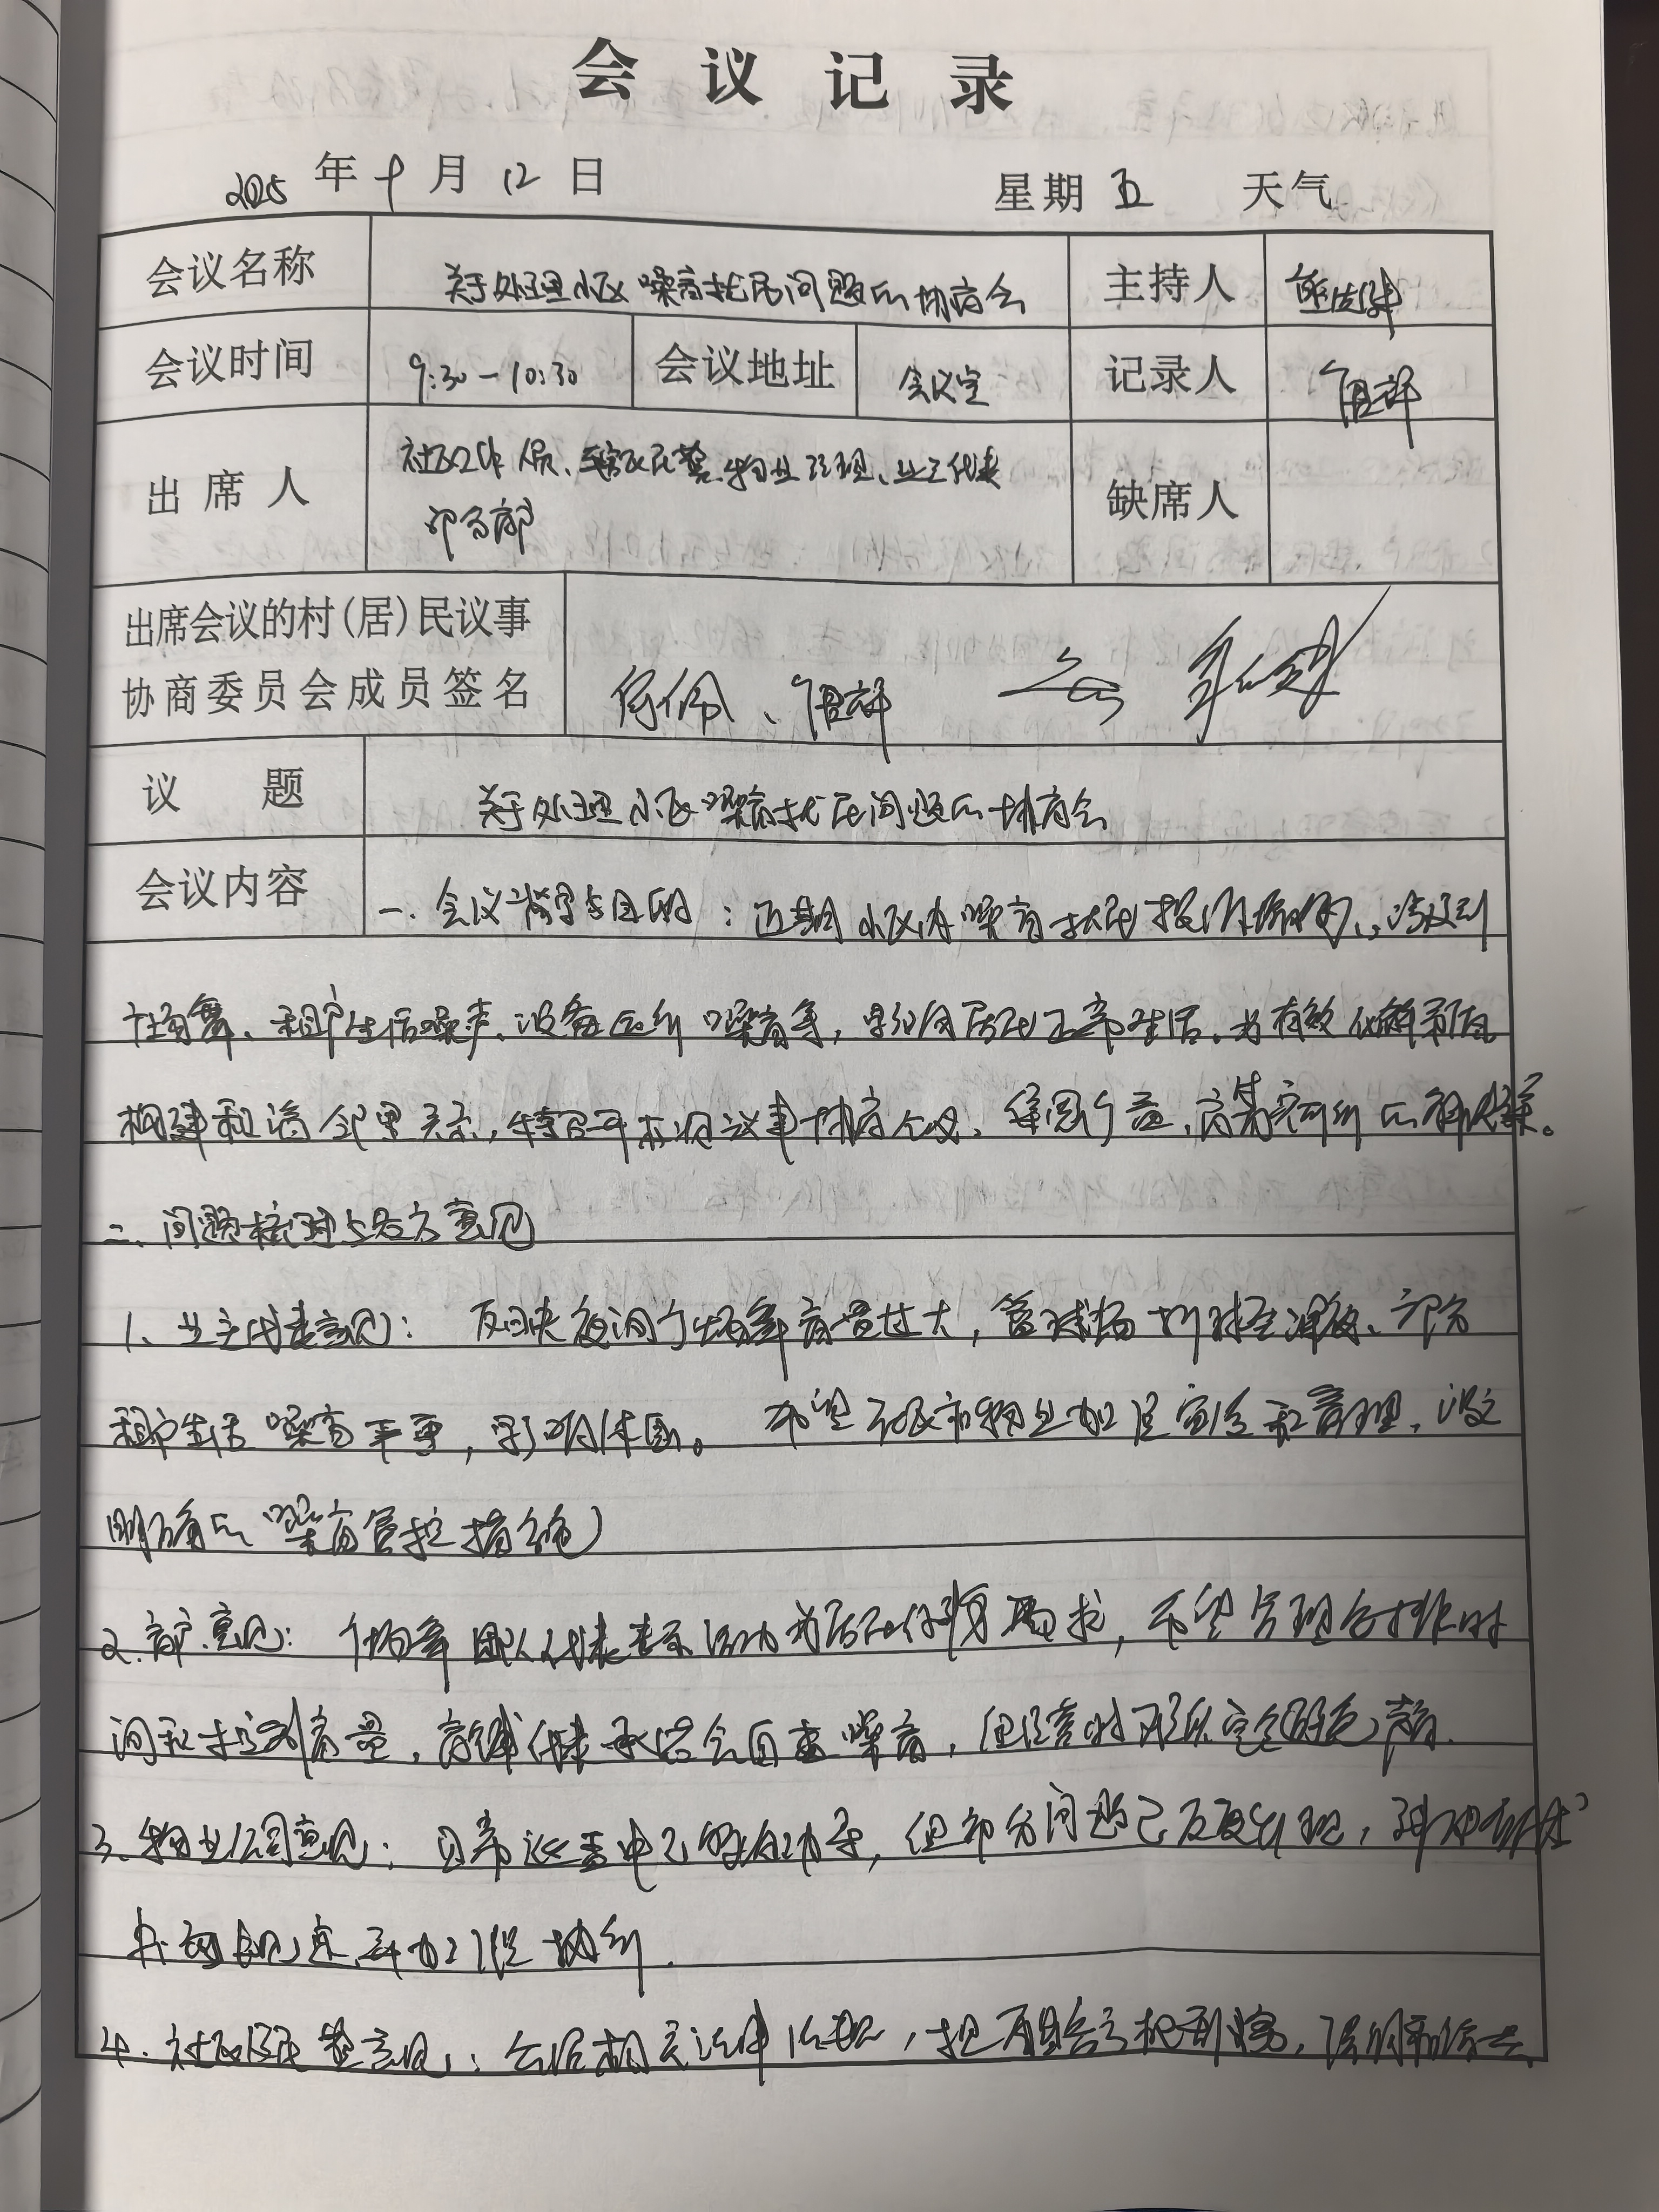 会议记录
2025年9月12日 星期五 天气
会议名称 关于处理小区噪音扰民问题的协商会 主持人
会议时间 9:30-10:30 会议地址 会议室 记录人
出席人 社区工作人员、辖区民警、物业经理、业主代表 缺席人
出席会议的村(居)民议事
协商委员会成员签名
议题 关于处理小区噪音扰民问题的协商会
会议内容 一.会议背景与目的:近期小区内噪音扰民投诉增多,涉及到
广场舞、租户生活噪声、设备运行噪音等,影响居民正常生活。为有效化解矛盾
构建和谐邻里关系,特召开本次议事协商会议,集思广益,商其可行的解决方案。
二、问题梳理与各方意见
1、业主代表意见: 反映夜间广场舞音量过大,篮球场打球至深夜、部分
租户生活噪音严重,影响休息。 希望社区和物业加强宣传和管理,设立
明确的噪音管控措施
2. 意见: 广场舞团队代表表示活动为居民健身需求,希望合理安排时
间和控制音量, 代表承诺会自查噪音,但经营时无法完全避免声音.
3.物业公司意见: 日常巡查中已多次劝导,但部分问题已反复出现,
书面规定并加强执行.
4.社区民警意见:会依据相关法律依据,